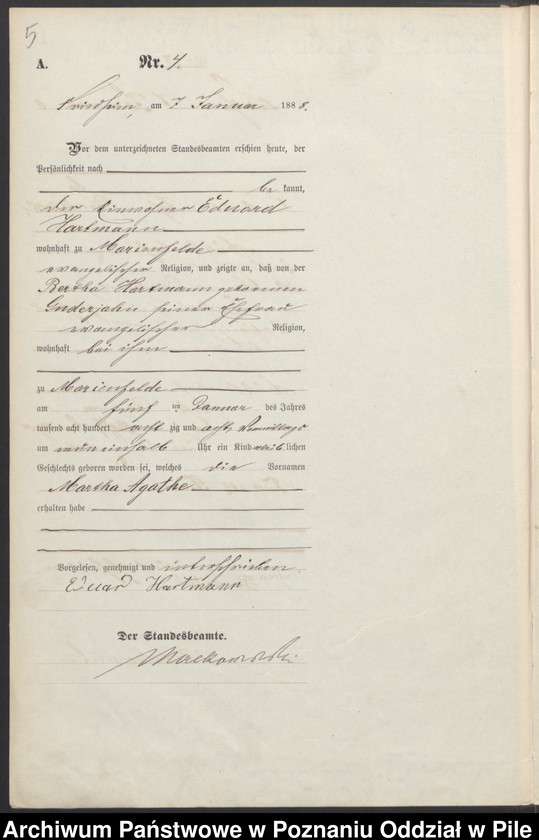 5
A. Nr. 4.
Friedheim, am 7 Januar 1888.
Vor dem unterzeichneten Standesbeamten erschien heute, der
Persönlichkeit nach
be kannt,
der Einwohner Eduard
Hartmann
wohnhaft zu Marienfelde
evangelischer Religion, und zeigte an, daß von der
Bertha Hartmann geborenen
Guderjahn seiner Ehefrau
evangelischer Religion,
wohnhaft bei ihm
zu Marienfelde
am fünf ten Januar des Jahres
tausend acht hundert acht zig und acht Vormittags
um neuneinhalb Uhr ein Kind weib lichen
Geschlechts geboren worden sei, welches die Vornamen
Martha Agathe
erhalten habe
Vorgelesen, genehmigt und unterschrieben
Eduard Hartmann
Der Standesbeamte.
Mackowski
Archiwum Państwowe w Poznaniu Oddział w Pile